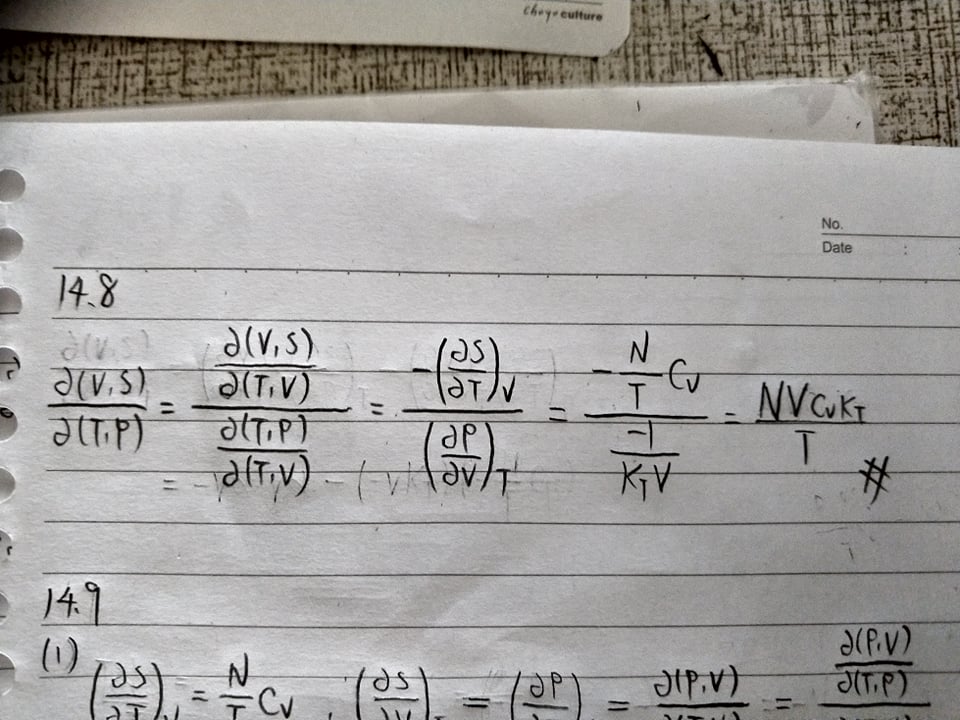 Choyo culture
No.
Date :
14.8
∂(V,S)/∂(T,P) = (∂(V,S)/∂(T,V))/(∂(T,P)/∂(T,V)) = (-(∂S/∂T)_V)/((∂P/∂V)_T) = (-N/T C_V)/(-1/(K_T V)) = NVC_VK_T/T #
14.9
(1) (∂S/∂T)_V = N/T C_V , (∂S/∂V)_T = (∂P/∂ = ∂(P,V)/ = (∂(P,V)/∂(T,P))/